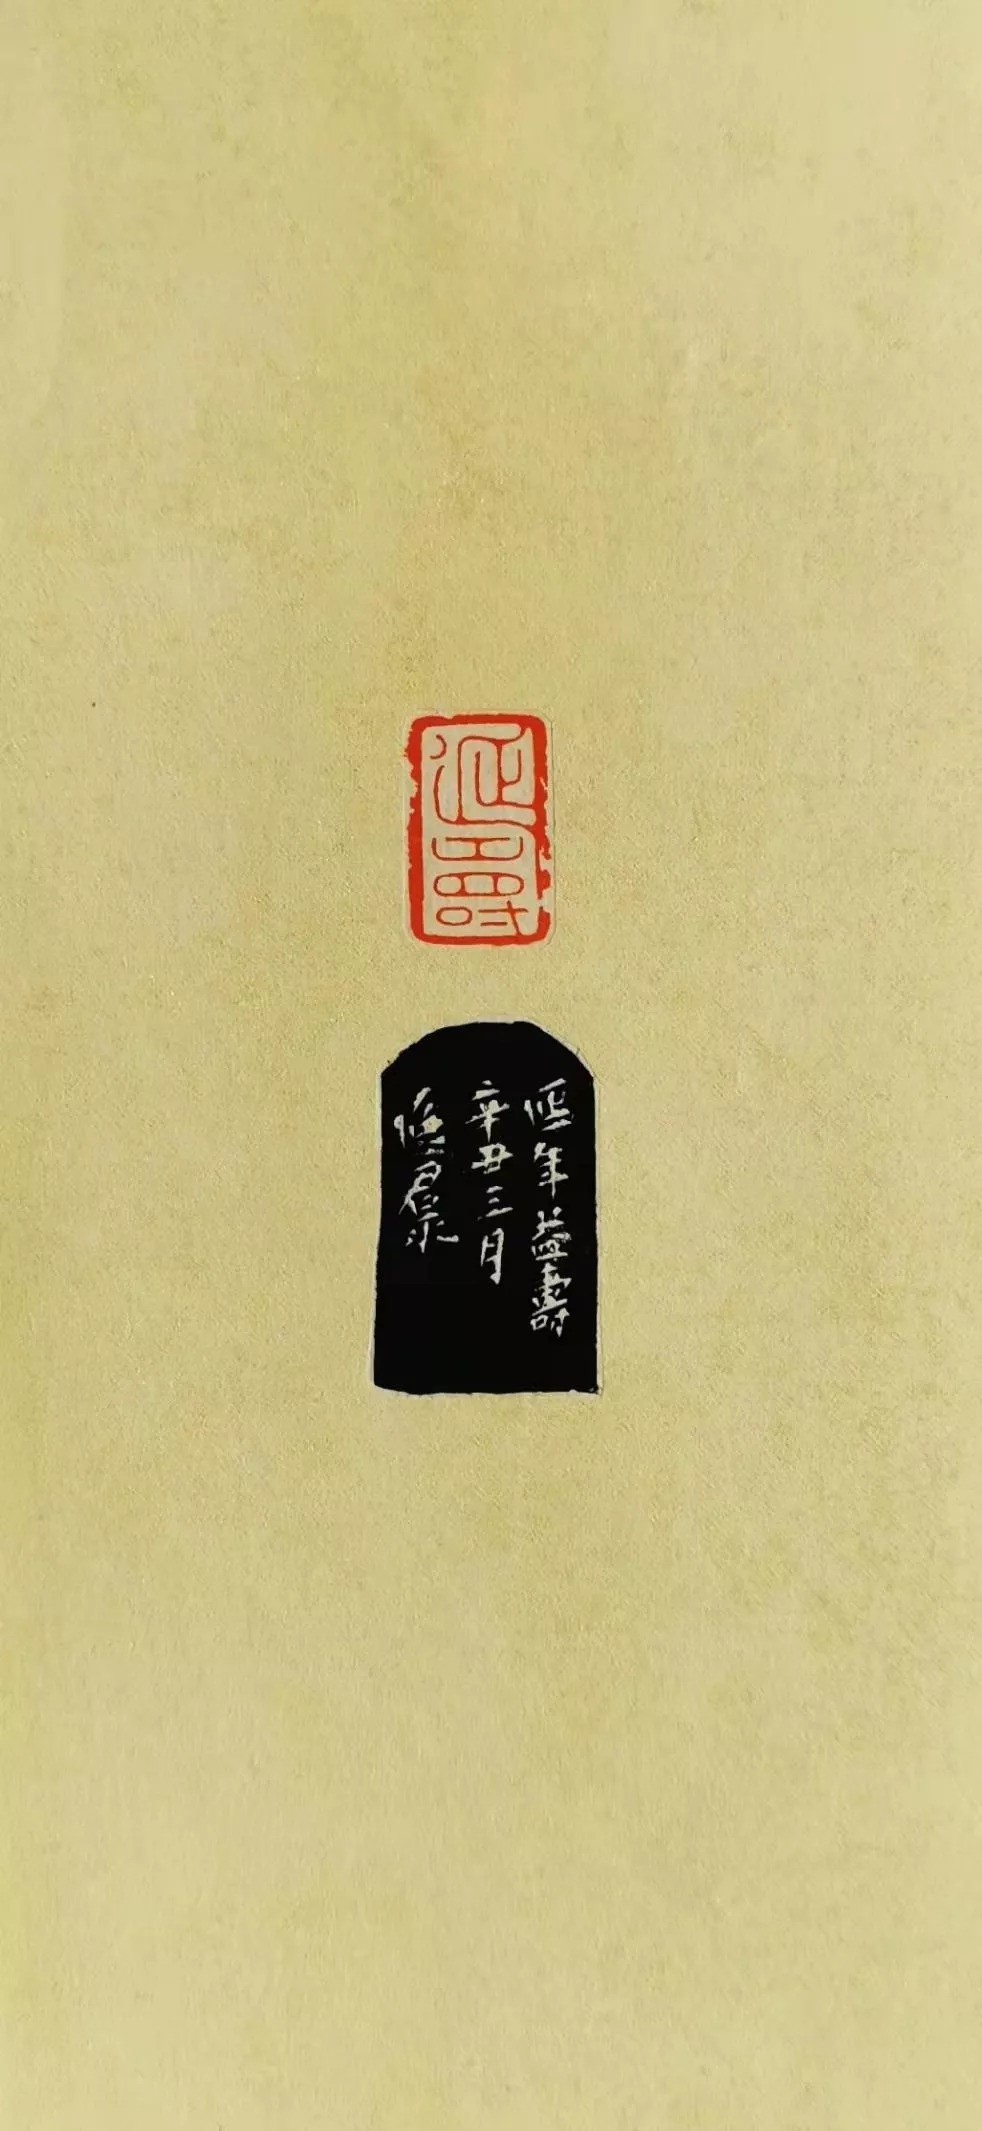 延壽
延年益壽
辛丑三月